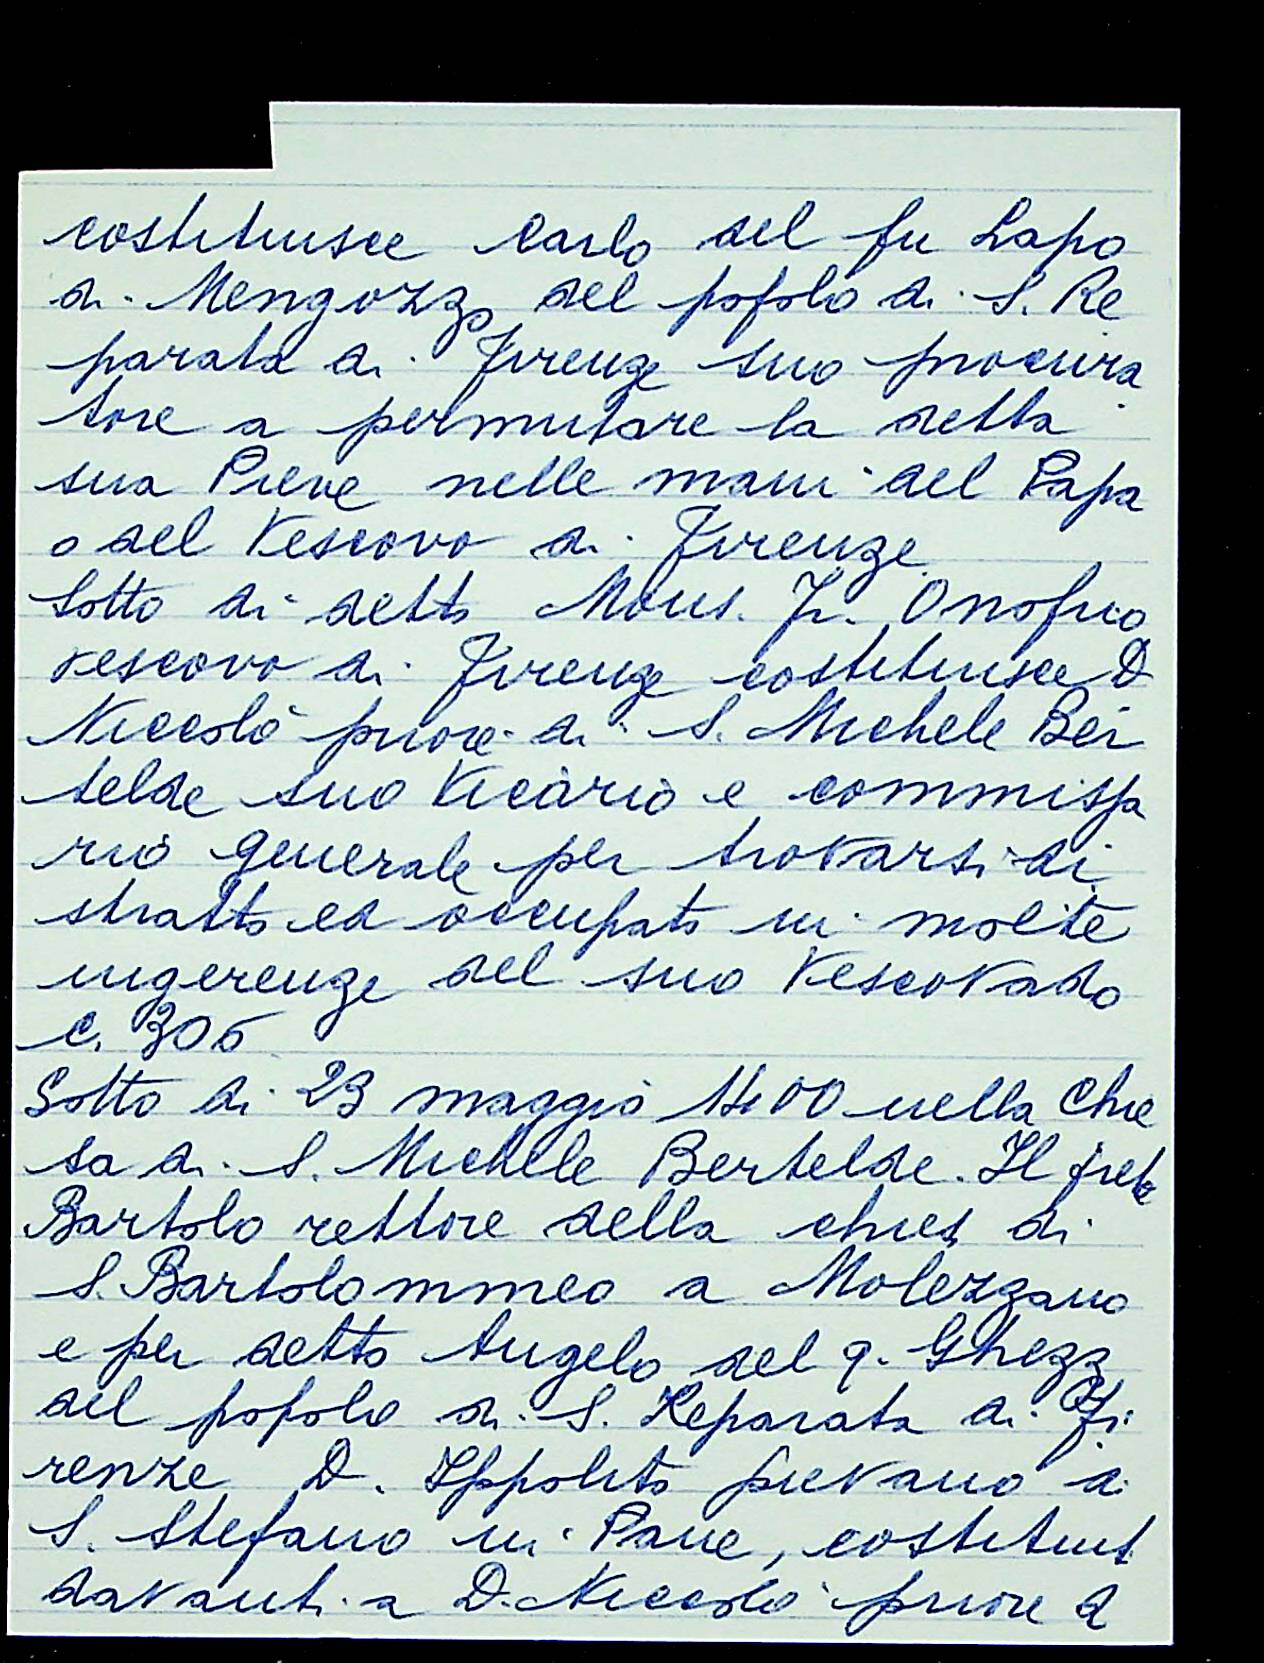 costituisce Carlo del fu Lapo
di Mengozzo del popolo di S. Re
parata di Firenze suo procura
tore a permutare la detta
sua Pieve nelle mani del Papa
o del Vescovo di Firenze
Sotto di detto Mons. Fr. Onofrio
vescovo di Firenze costituisce D
Niccolò priore di S. Michele Ber
telde suo Vicario e commissa
rio generale per trovarsi di
stratto ed occupato in molte
ingerenze del suo Vescovado
c. 306
Sotto di 23 maggio 1400 nella Chie
sa di S. Michele Bertelde. Il prete
Bartolo rettore della chiesa di
S. Bartolommeo a Molezzano
e per detto Angelo del q. Ghezzo
del popolo di S. Reparata di Fi
renze D. Ippolito pievano di
S. Stefano in Pane, costituit
davanti a D. Niccolò priore d